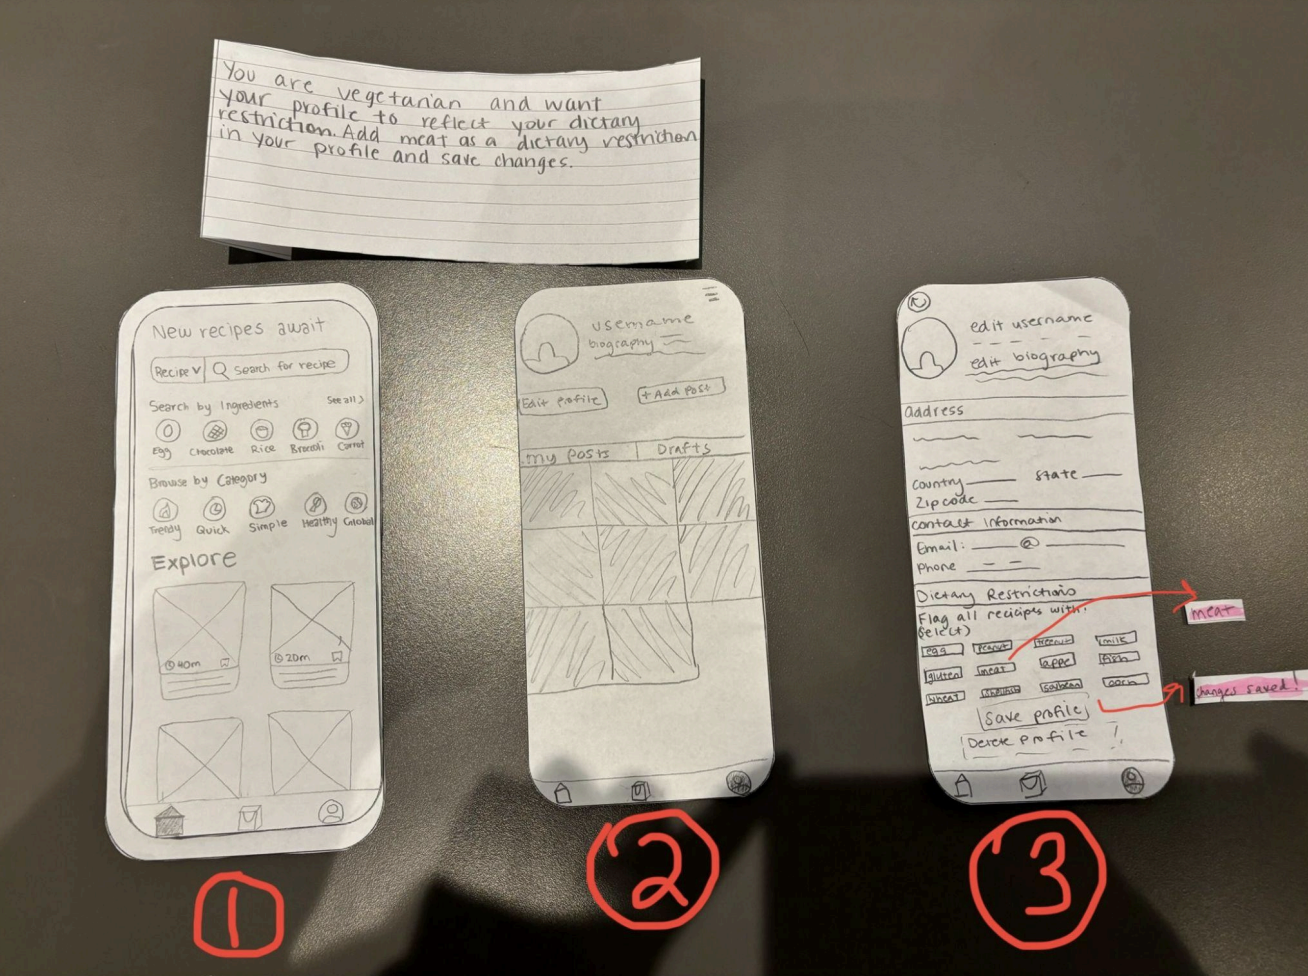 You are vegetarian and want
your profile to reflect your dietary
restriction. Add meat as a dietary restriction
in your profile and save changes.
New recipes await
Recipe Search for recipe
Search by Ingredients See all >
Egg Chocolate Rice Broccoli Carrot
Browse by Category
Trendy Quick Simple Healthy Global
Explore
40m 20m
1
username
biography
Edit profile + Add Post
my posts Drafts
2
edit username
edit biography
address
Country State
Zipcode
contact Information
Email: @
Phone
Dietary Restrictions
Flag all recicipes with:
select)
egg peanut treenut milk
gluten meat fish
wheat soybean corn
Save profile
Delete profile
meat
changes saved!
3